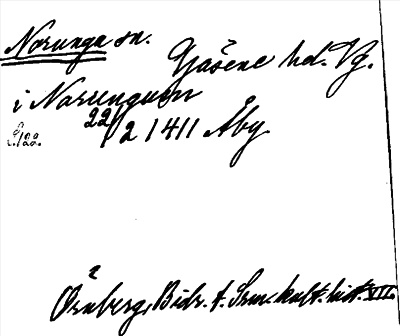 Norunga sn.
Gäsene hd. Vg.
i Narunguom
22/2 1411 Åby
Örnberg, Bidr. t. Srm. kult. hist. VII.